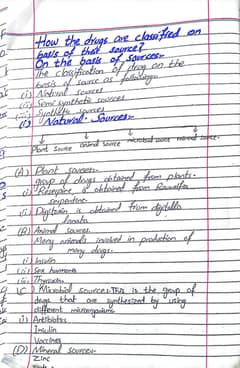 How the drugs are classified on
basis of that source?
On the basis of sources:-
The classification of drug on the
basis of source as following:-
(i) Natural sources
(ii) Semi synthetic sources
(iii) Synthetic sources
(i) Natural Sources:-
Plant source animal source microbial source mineral source
(A) Plant sources:-
group of drugs obtained from plants.
(i) Reserpine is obtained from Rauwolfia
serpentina
(ii) Digitoxin is obtained from digitalis
lanata
(B) Animal sources.
Many animals involved in production of
many drugs.
(i) Insulin
(ii) Sex hormones
(iii) Thyroxin
(C) Microbial sources:- This is the group of
drugs that are synthesized by using
different microorganisms
(i) Antibiotics
Insulin
Vaccines
(D) Mineral sources:-
Zinc